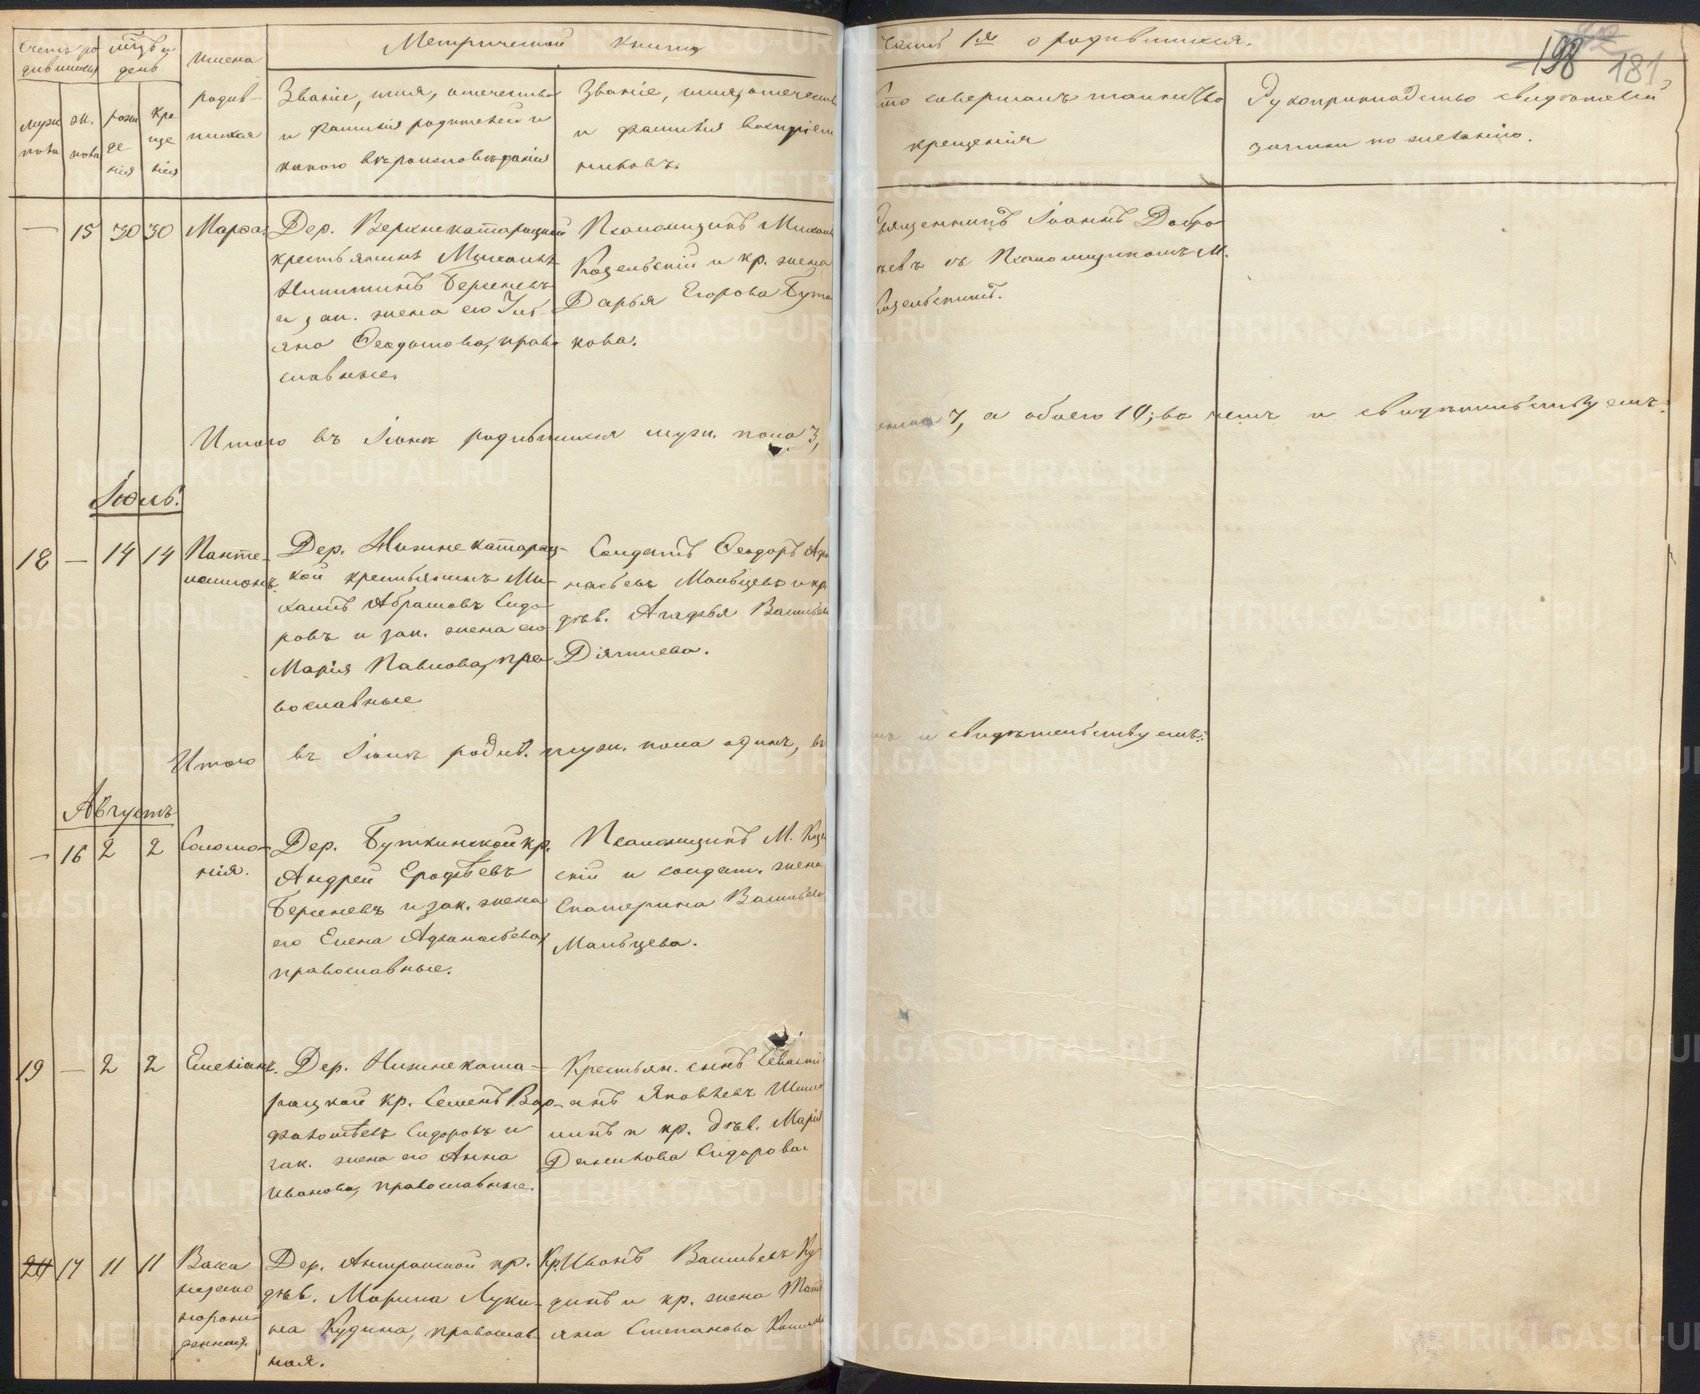 Метрической книги
Счетъ ро-
дившихся
мѣсяцъ и
день
Имена
родив-
шихся
муж.
пола
ж.
пола
рож
де
нія
кре
ще
нія
Званіе, имя, отечество
и фамилія родителей и
какого вѣроисповѣданія
Званіе, имя, отечест
и фамилія воспріем
никовъ.
часть 1я о родившихся.
198 181
Кто совершалъ таинство
крещенія
Рукоприкладство свидѣтелей
записи по желанію.
— 15 30 30 Марѳа.
Дер. Верхнекатарацкой
крестьянинъ Михаилъ
Никитинъ Берсеневъ
и зак. жена его Уль
яна Ѳеодотова, право
славные.
Псаломщикъ Михаилъ
Козельскій и кр. жена
Дарья Егорова Бут
кова.
Священникъ Іоаннъ Добро
съ Псаломщикомъ М.
Козельскимъ.
Итого въ Іюнѣ родившихся муж. пола 3,
7, а обоего 10; въ чемъ и свидѣтельствуемъ:
Іюль.
18 — 14 14 Панте-
леимонъ.
Дер. Нижнекатарац-
кой крестьянинъ Ми-
хаилъ Абрамовъ Сидо-
ровъ и зак. жена его
Марія Павлова, пра-
вославные
Солдатъ Ѳеодоръ Афа
насьевъ Мальцевъ и кр.
дѣв. Агафья Василье
Дягилева.
Итого въ Іюлѣ родив. муж. пола одинъ, въ
и свидѣтельствуемъ:
Августъ
— 16 2 2 Соломо-
нія.
Дер. Буткинской кр.
Андрей Ерофѣевъ
Берсеневъ и зак. жена
его Елена Афанасьева,
православные.
Псаломщикъ М. Козе
скій и солдат. жена
Екатерина Васильева
Мальцева.
19 — 2 2 Емеліанъ.
Дер. Нижнеката-
рацкой кр. Семенъ Вар-
фаломѣевъ Сидоровъ и
зак. жена его Анна
Иванова, православные.
Крестьян. сынъ Севасті
анъ Яковлевъ
и кр. дѣв. Марія
Данилова Сидорова.
20 17 11 11 Васса
незако
норож
денная.
Дер. Антрапской кр.
дѣв. Марина Луки-
на Кудина, православ
ная.
Кр. Иванъ Васильевъ Ку
динъ и кр. жена Тать
яна Степанова
METRIKI.GASO-URAL.RU